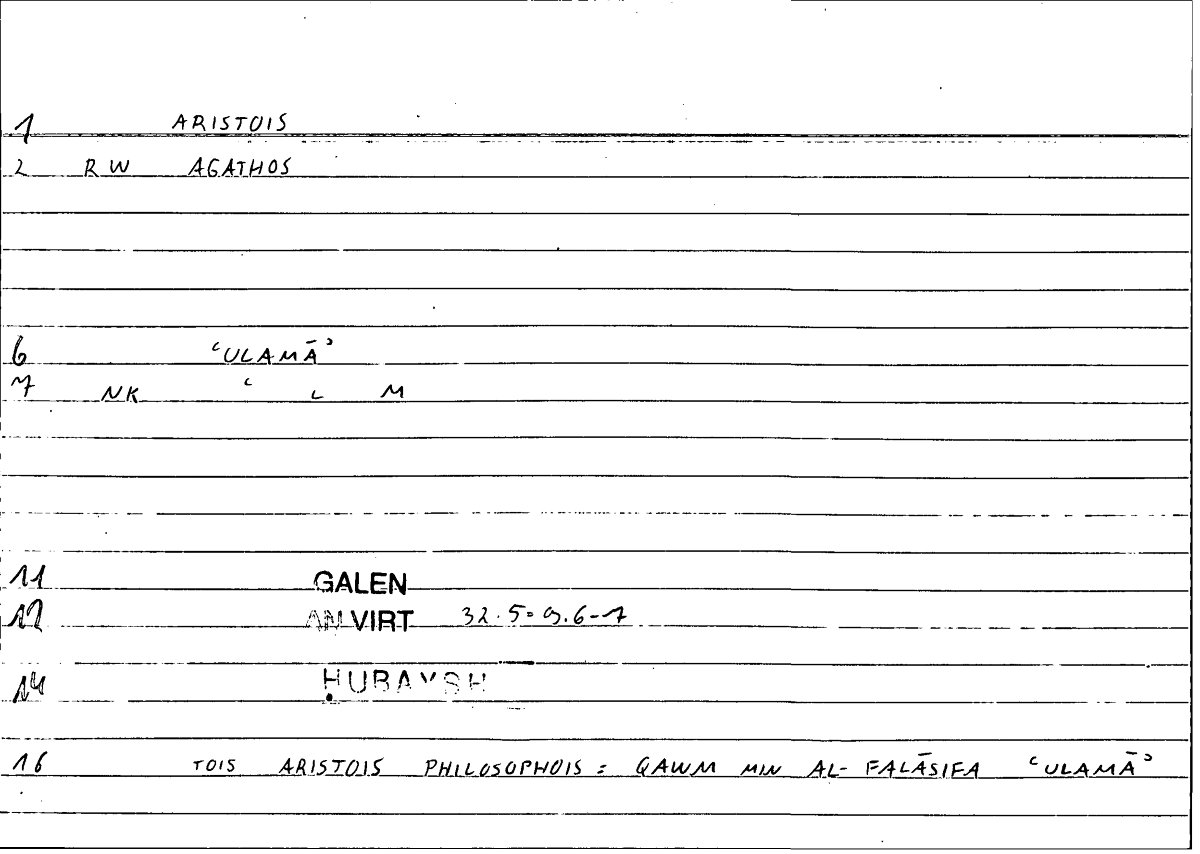 1 ARISTOIS
2 RW AGATHOS
6 ʿULAMĀʾ
7 NK ʿ L M
11 GALEN
12 AN VIRT 32.5=9.6-7
14 ḤUBAYSH
16 TOIS ARISTOIS PHILOSOPHOIS = QAWM MIN AL-FALĀSIFA ʿULAMĀʾ